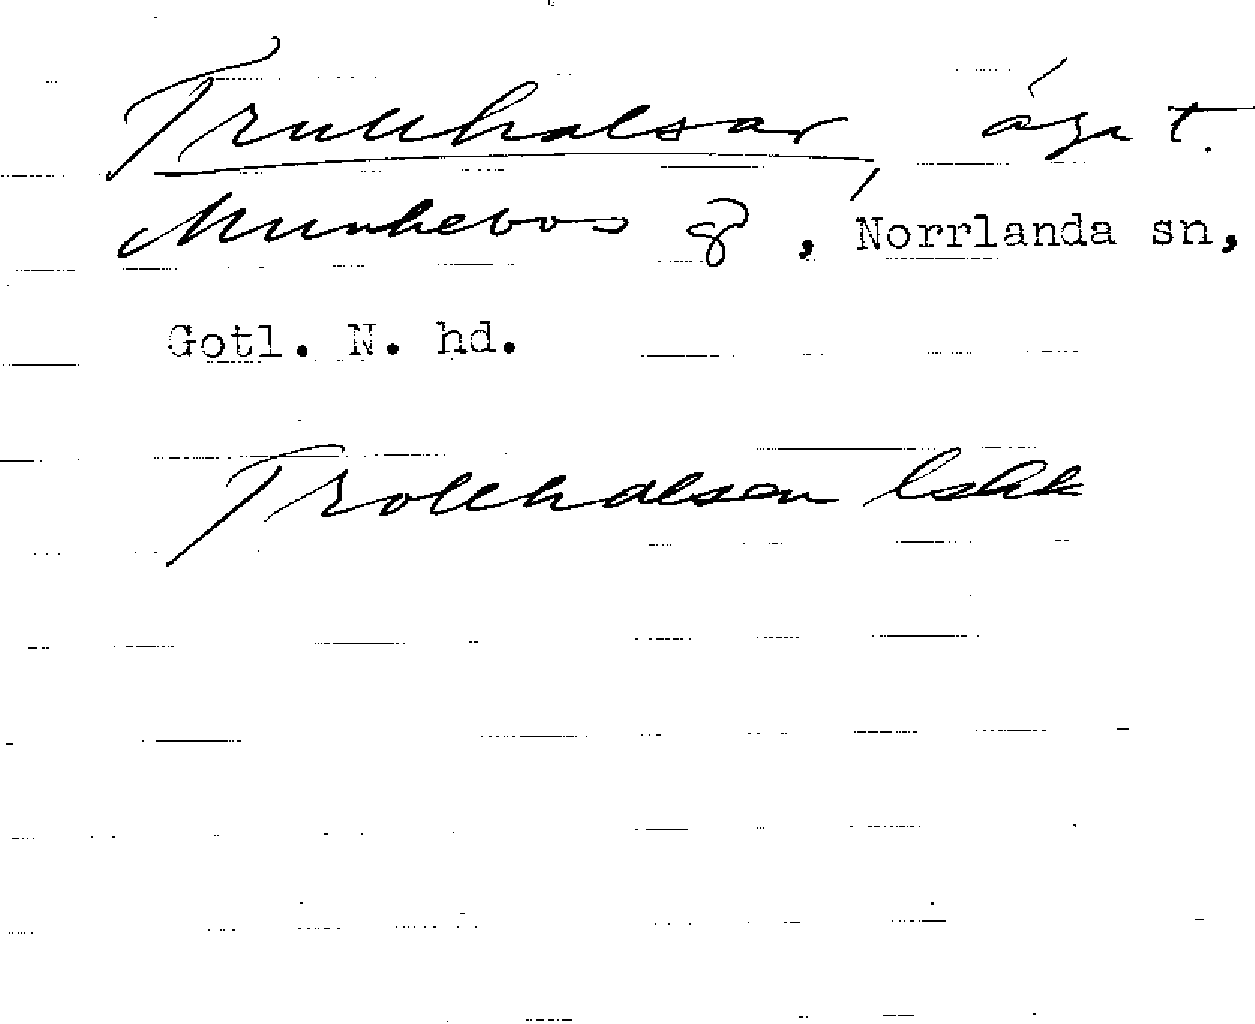 Trullhalsar, ägn t.
Munkebos g, Norrlanda sn,
Gotl. N. hd.
Trollhalsen lskk